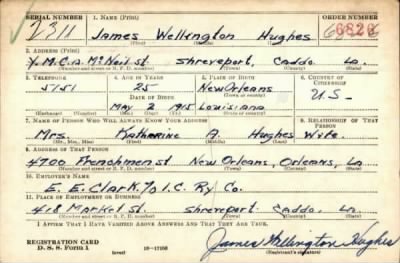 SERIAL NUMBER 1. NAME (Print) ORDER NUMBER
2311 James Wellington Hughes
(First) (Middle) (Last)
2. ADDRESS (Print)
Y.M.C.A. McNeil st. Shreveport, Caddo. La.
(Number and street or R. F. D. number) (Town) (County) (State)
3. TELEPHONE 4. AGE IN YEARS 5. PLACE OF BIRTH 6. COUNTRY OF CITIZENSHIP
5151 25 New Orleans
DATE OF BIRTH (Town or county) U.S.
May 2 1915 Louisiana
(Exchange) (Number) (Mo.) (Day) (Yr.) (State or country)
7. NAME OF PERSON WHO WILL ALWAYS KNOW YOUR ADDRESS 8. RELATIONSHIP OF THAT PERSON
Mrs. Katherine A. Hughes Wife
(Mr., Mrs., Miss) (First) (Middle) (Last)
9. ADDRESS OF THAT PERSON
4700 Frenchmen st New Orleans, Orleans, La
(Number and street or R. F. D. number) (Town) (County) (State)
10. EMPLOYER'S NAME
E. E. Clark. % I.C. Ry Co.
11. PLACE OF EMPLOYMENT OR BUSINESS
418 Market st Shreveport Caddo. La.
(Number and street or R. F. D. number) (Town) (County) (State)
I AFFIRM THAT I HAVE VERIFIED ABOVE ANSWERS AND THAT THEY ARE TRUE.
REGISTRATION CARD
D. S. S. Form 1 (over) 16-17105 James Wellington Hughes
(Registrant's signature)